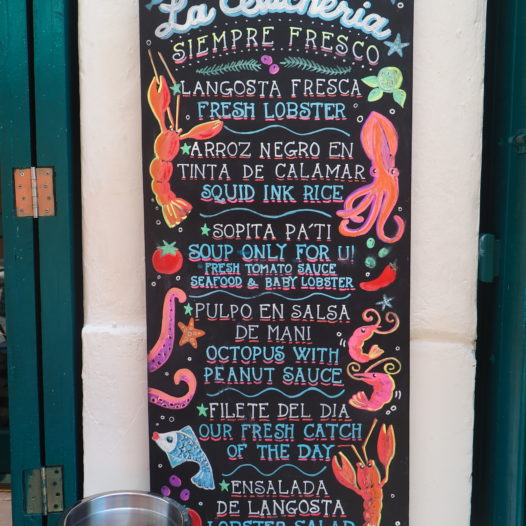 La Cevicheria
SIEMPRE FRESCO
LANGOSTA FRESCA
FRESH LOBSTER
ARROZ NEGRO EN
TINTA DE CALAMAR
SQUID INK RICE
SOPITA PA'TI
SOUP ONLY FOR U!
FRESH TOMATO SAUCE
SEAFOOD & BABY LOBSTER
PULPO EN SALSA
DE MANI
OCTOPUS WITH
PEANUT SAUCE
FILETE DEL DIA
OUR FRESH CATCH
OF THE DAY
ENSALADA
DE LANGOSTA
LOBSTER SALAD